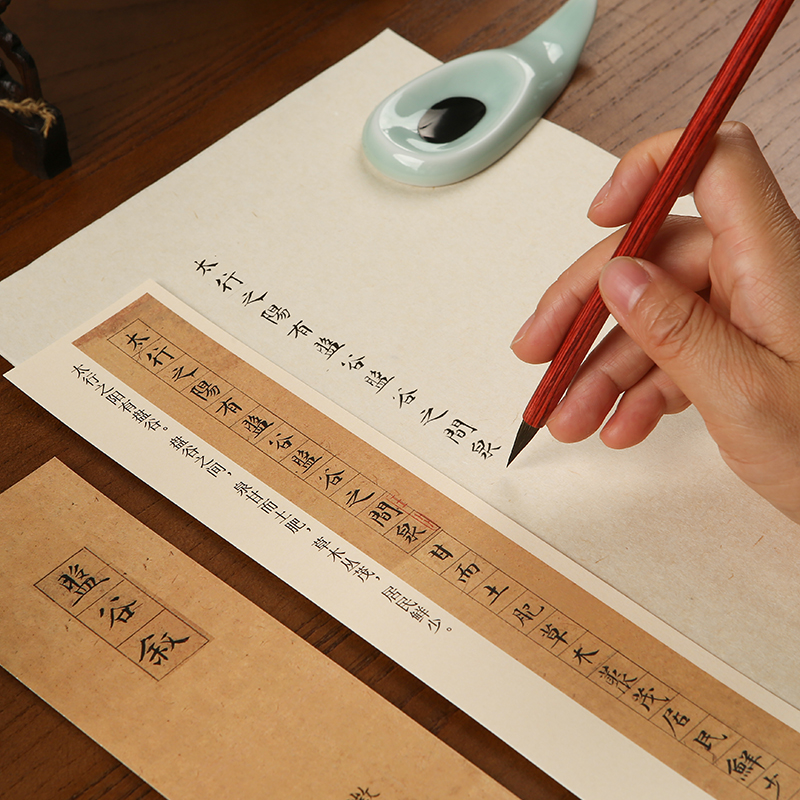 太行之陽有盤谷盤谷之間泉
太行之陽有盤谷盤谷之間泉甘而土肥草木藂茂居民鮮少
太行之阳有盘谷。盘谷之间，泉甘而土肥，草木丛茂，居民鲜少。
盤谷叙